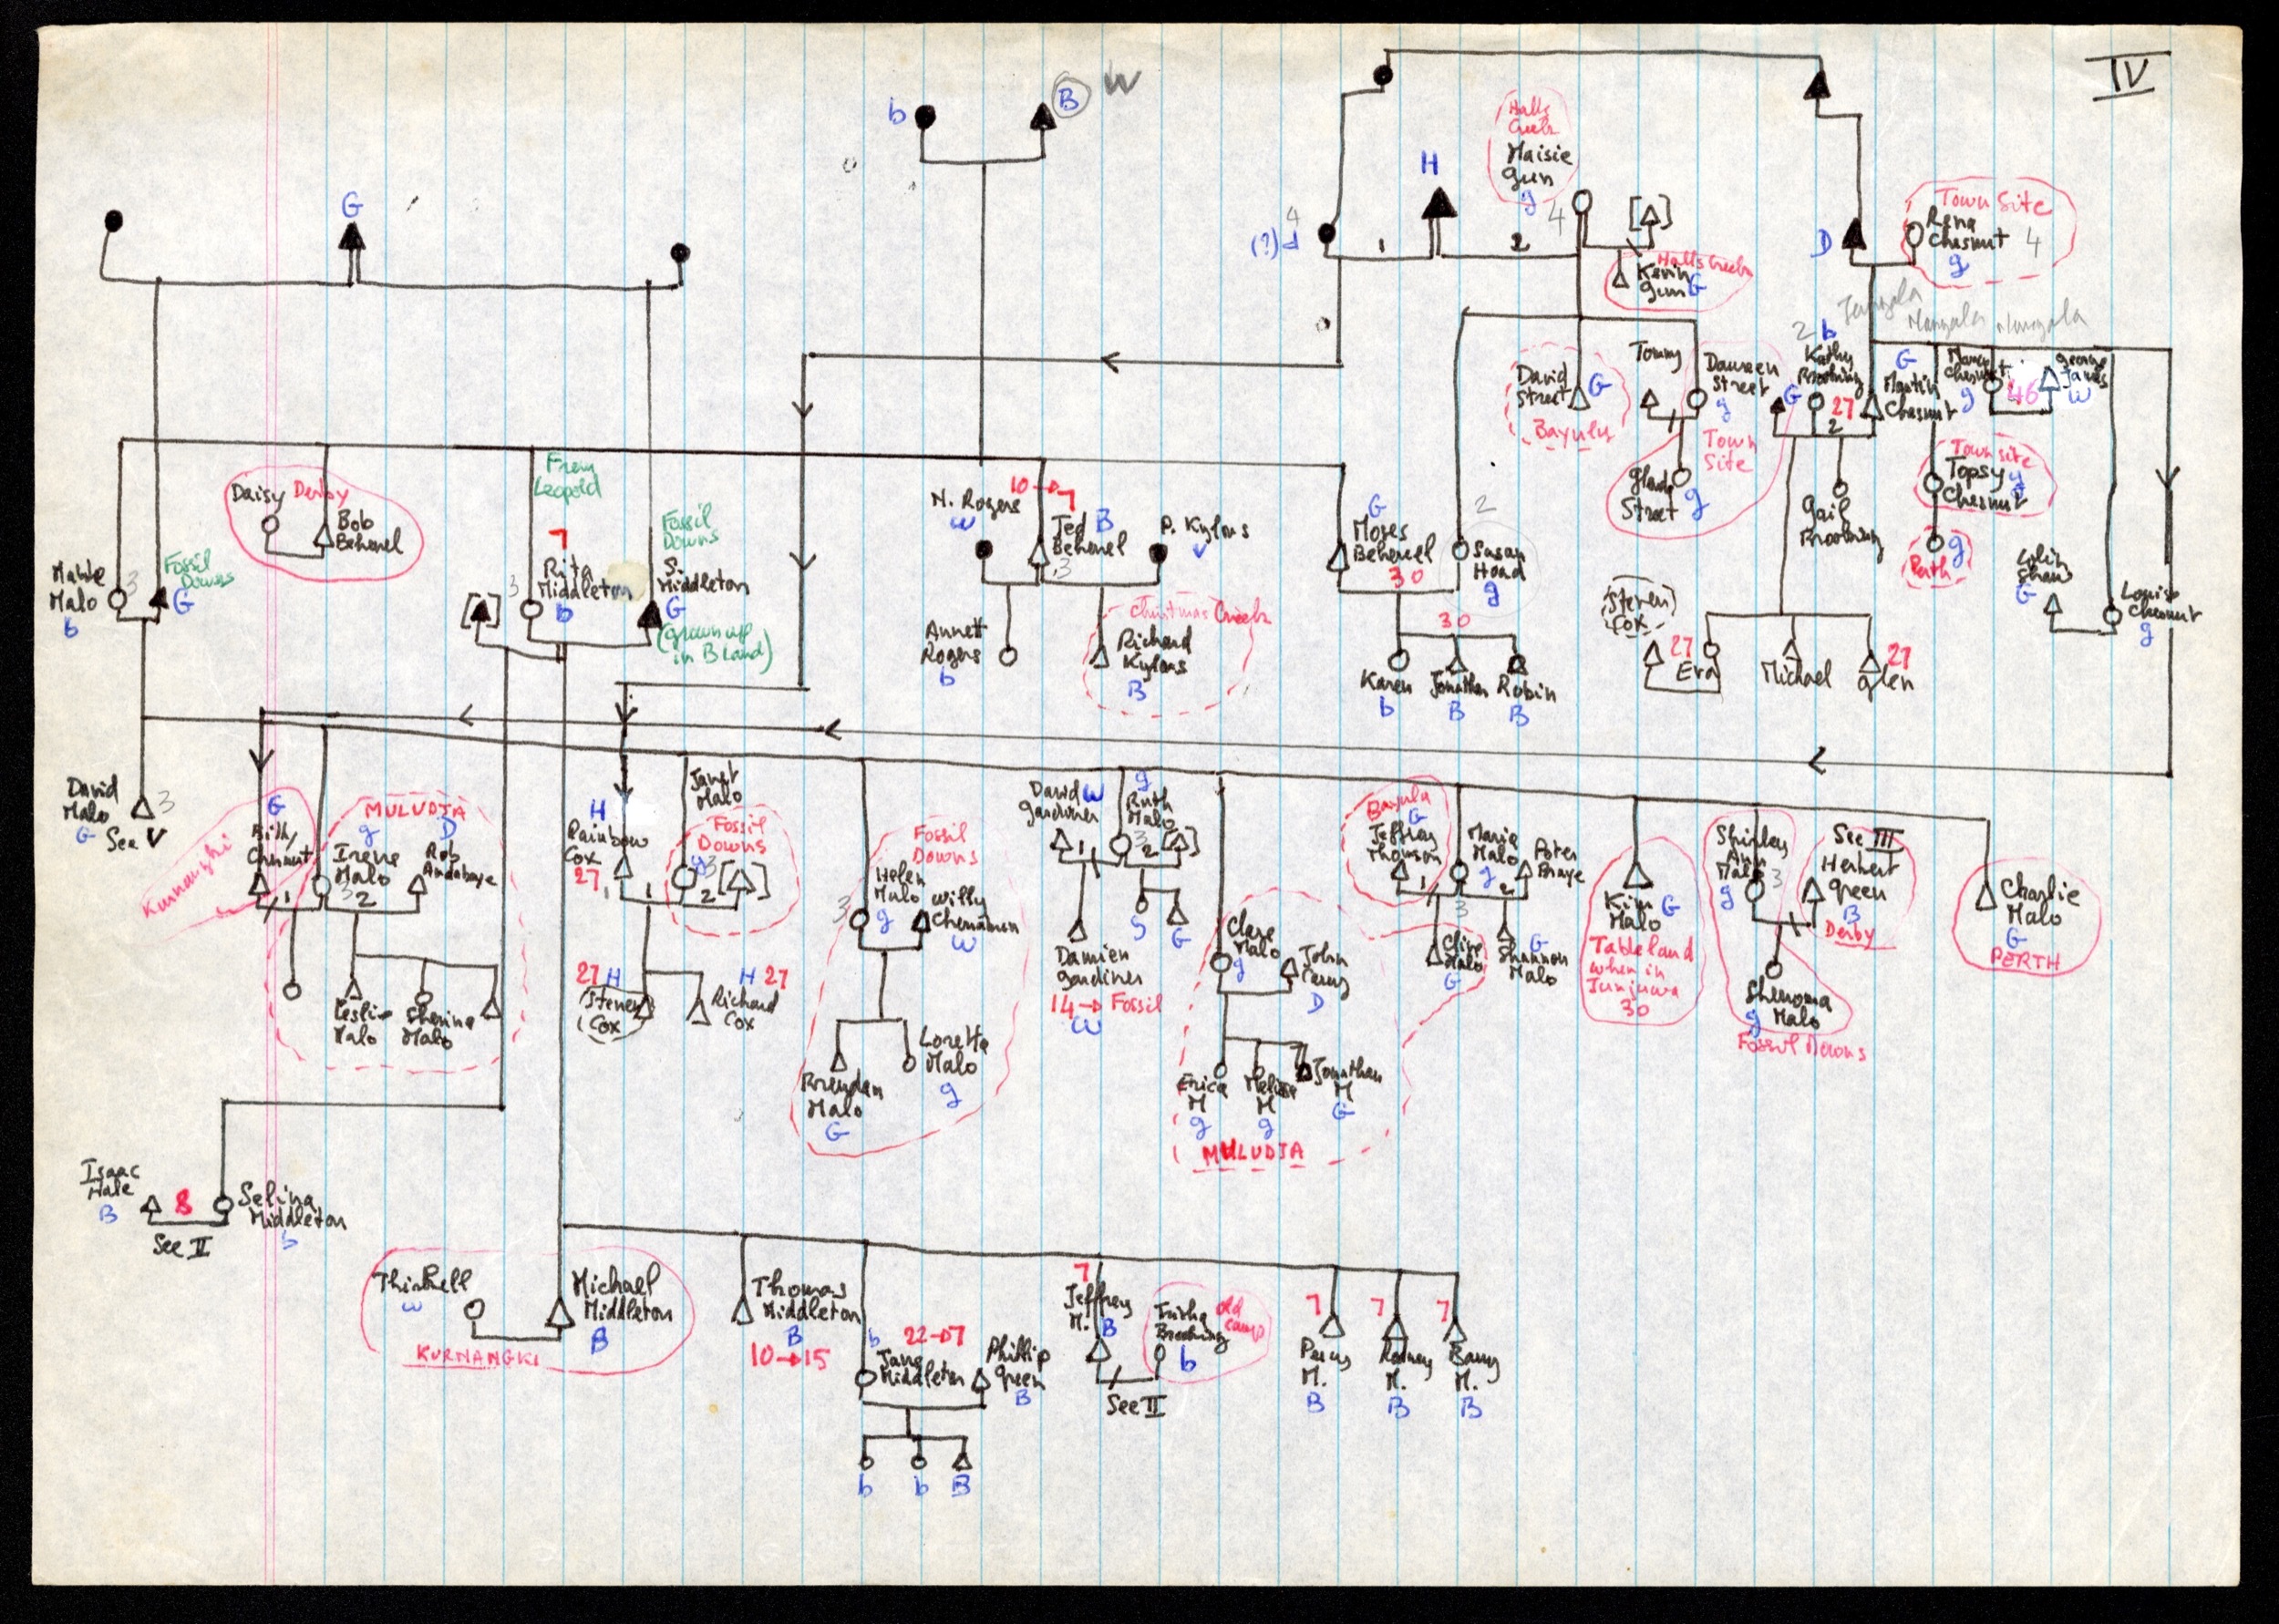 IV
b
B
W
Halls
Creek
Maisie
Gun
g
4
H
G
4
(?) d
1
2
[ ]
Halls Creek
Kevin
Gun G
D
Town Site
Rena
Chesnut 4
g
Nangala
David
Street G
Bayulu
Tommy
Daureen
Street
g
Town
Site
Glenda
Street g
2 b
Kathy
Brooking
G
27
2
G
Martin
Chesnut
Nancy
Chesnut
g
46
George
James
W
Gail
Brooking
Town site
Topsy g
Chesnut
g
Perth
Colin
Shaw
G
Louise
Chesnut
g
(Steven
Cox)
27
Eva
Michael
27
Glen
From
Leopold
Daisy Derby
Bob
Behenel
Mabel
Malo
3
b
Fossil
Downs
G
7
Rita
Middleton
3
b
[ ]
Fossil
Downs
S.
Middleton
G
(grown up
in B land)
N. Rogers
w
10→7
Ted B
Behenel
3
P. Kylms
Annett
Rogers
b
Christmas Creek
Richard
Kylms
B
G
Moses
Behenel
30
2
Susan
Hoad
g
30
Karen
b
Jonathan
B
Robin
B
David
Malo 3
G See V
Kurnangki
G
Billy
Chesnut
1
MULUDJA
g
Irene
Malo
3
2
D
Rob
Leslie
Malo
Sherina
Malo
H
Rainbow
Cox
27
1
Janet
Malo
Fossil
Downs
g 3
2
[ ]
27 H
(Steven
Cox)
H 27
Richard
Cox
Fossil
Downs
Helen
Malo
3
g
Willy
Chinaman
W
Brendan
Malo
G
Loretta
Malo
g
David W
Gardiner
1
g
Ruth
Malo
3
2
[ ]
Damien
Gardiner
14→Fossil
W
g
G
Clare
Malo
g
John
D
Erica
M
g
Melissa
M
g
Jonathan
M
G
MULUDJA
Bayulu
G
Jeffrey
Thomson
1
Maria
Malo
g
3
2
Peter
Clive
Malo
G
G
Shannon
Malo
Kim
Malo G
Tableland
when in
Junjuwa
30
Shirley
Ann
Malo
g 3
See III
Herbert
Green
B
Derby
Shenoma
Malo
g
Fossil Downs
Charlie
Malo
G
PERTH
Isaac
Hale
B
8
Selina
Middleton
b
See II
w
Michael
Middleton
B
KURNANGKI
Thomas
Middleton
B
10→15
b
22→7
Jane
Middleton
Phillip
Green
B
b
b
B
7
Jeffrey
M. B
Trisha
Brooking
b
old
camp
See II
7
Percy
M.
B
7
Rodney
M.
B
7
Barry
M.
B